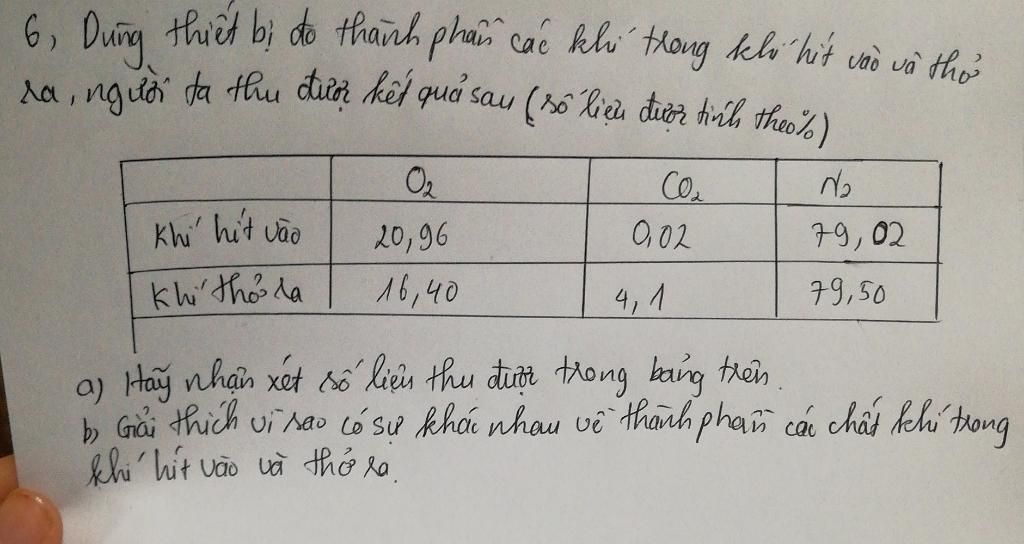 6, Dùng thiết bị đo thành phần các khí trong khí hít vào và thở
ra, người ta thu được kết quả sau (số liệu được tính theo%)
O₂ CO₂ N₂
Khí hít vào 20,96 0,02 79,02
Khí thở ra 16,40 4,1 79,50
a) Hãy nhận xét số liệu thu được trong bảng trên.
b) Giải thích vì sao có sự khác nhau về thành phần các chất khí trong
khí hít vào và thở ra.